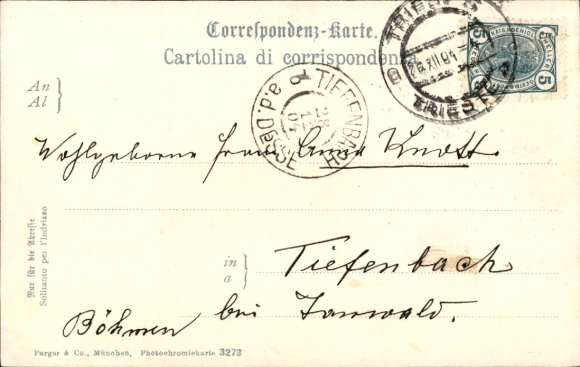 Correspondenz-Karte.
Cartolina di corrispondenza
TRIEST
TRIESTE
5 5
5 5
TIEFENBACH
a.d. DESSE
28
12
04
An
Al
Wohlgeborne Frau Anna Knott
in
a
Tiefenbach
bei Tannwald.
Böhmen
Nur für die Adresse
Soltanto per l'indirizzo
Purger & Co., München, Photochromiekarte 3273